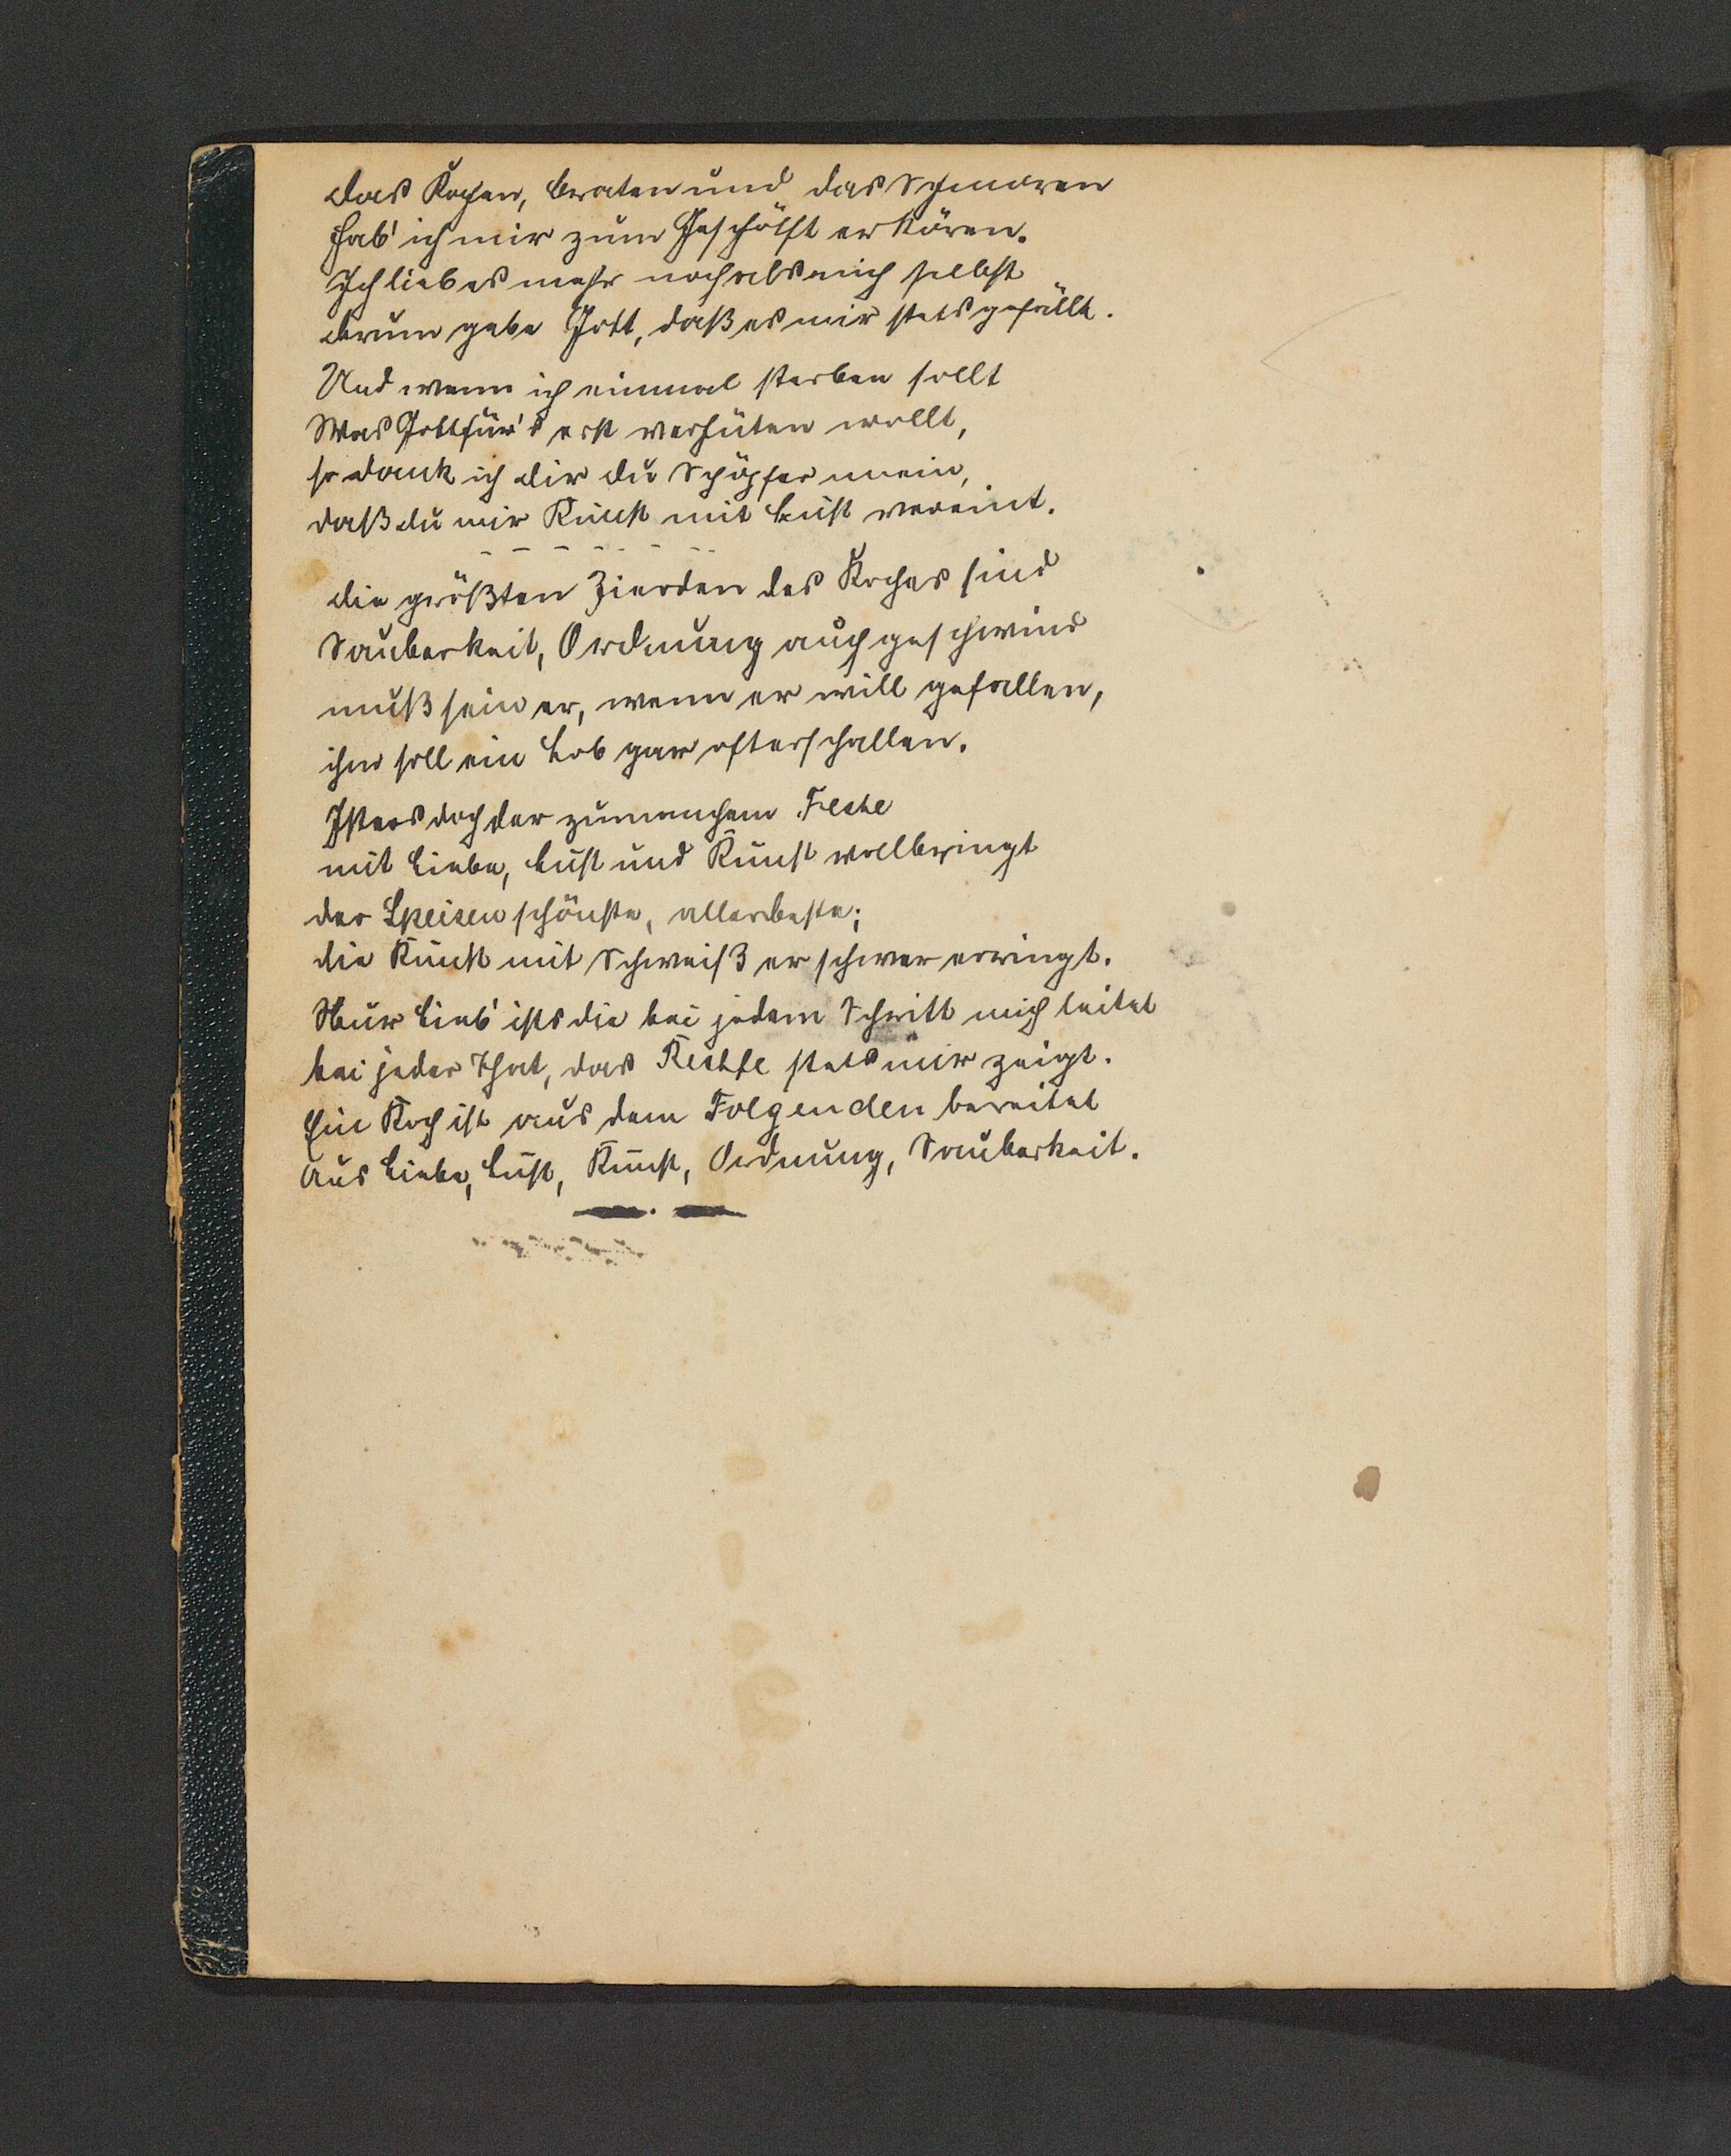 das Kochen, braten und das Schmoren
hab' ich mir zum Geschäfft erkören.
Ich lieb es mehr noch als mich selbst
drum gebe Gott, daß es mir stets gefällt.
Und wenn ich einmal sterben sollt
Was Gott für's erst verhüten wollt,
so dank ich dir du Schöpfer mein,
daß du mir Kunst mit Lust vereint.
die größten Zierden des Koches sind
Sauberkeit, Ordnung auch geschwind
muß sein er, wenn er will gefallen,
ihm soll ein Lob gar oft erschallen.
Ist ers doch der zu manchem Feste
mit Liebe, Lust und Kunst vollbringt
der Speisen schönste, allerbeste;
die Kunst mit Schweiß er schwer erringt.
Nur Lieb' ists die bei jedem Schritt mich leitet
bei jeder That, das Rechte stets mir zeigt.
Ein Koch ist aus dem Folgenden bereitet
aus Liebe, Lust, Kunst, Ordnung, Sauberkeit.